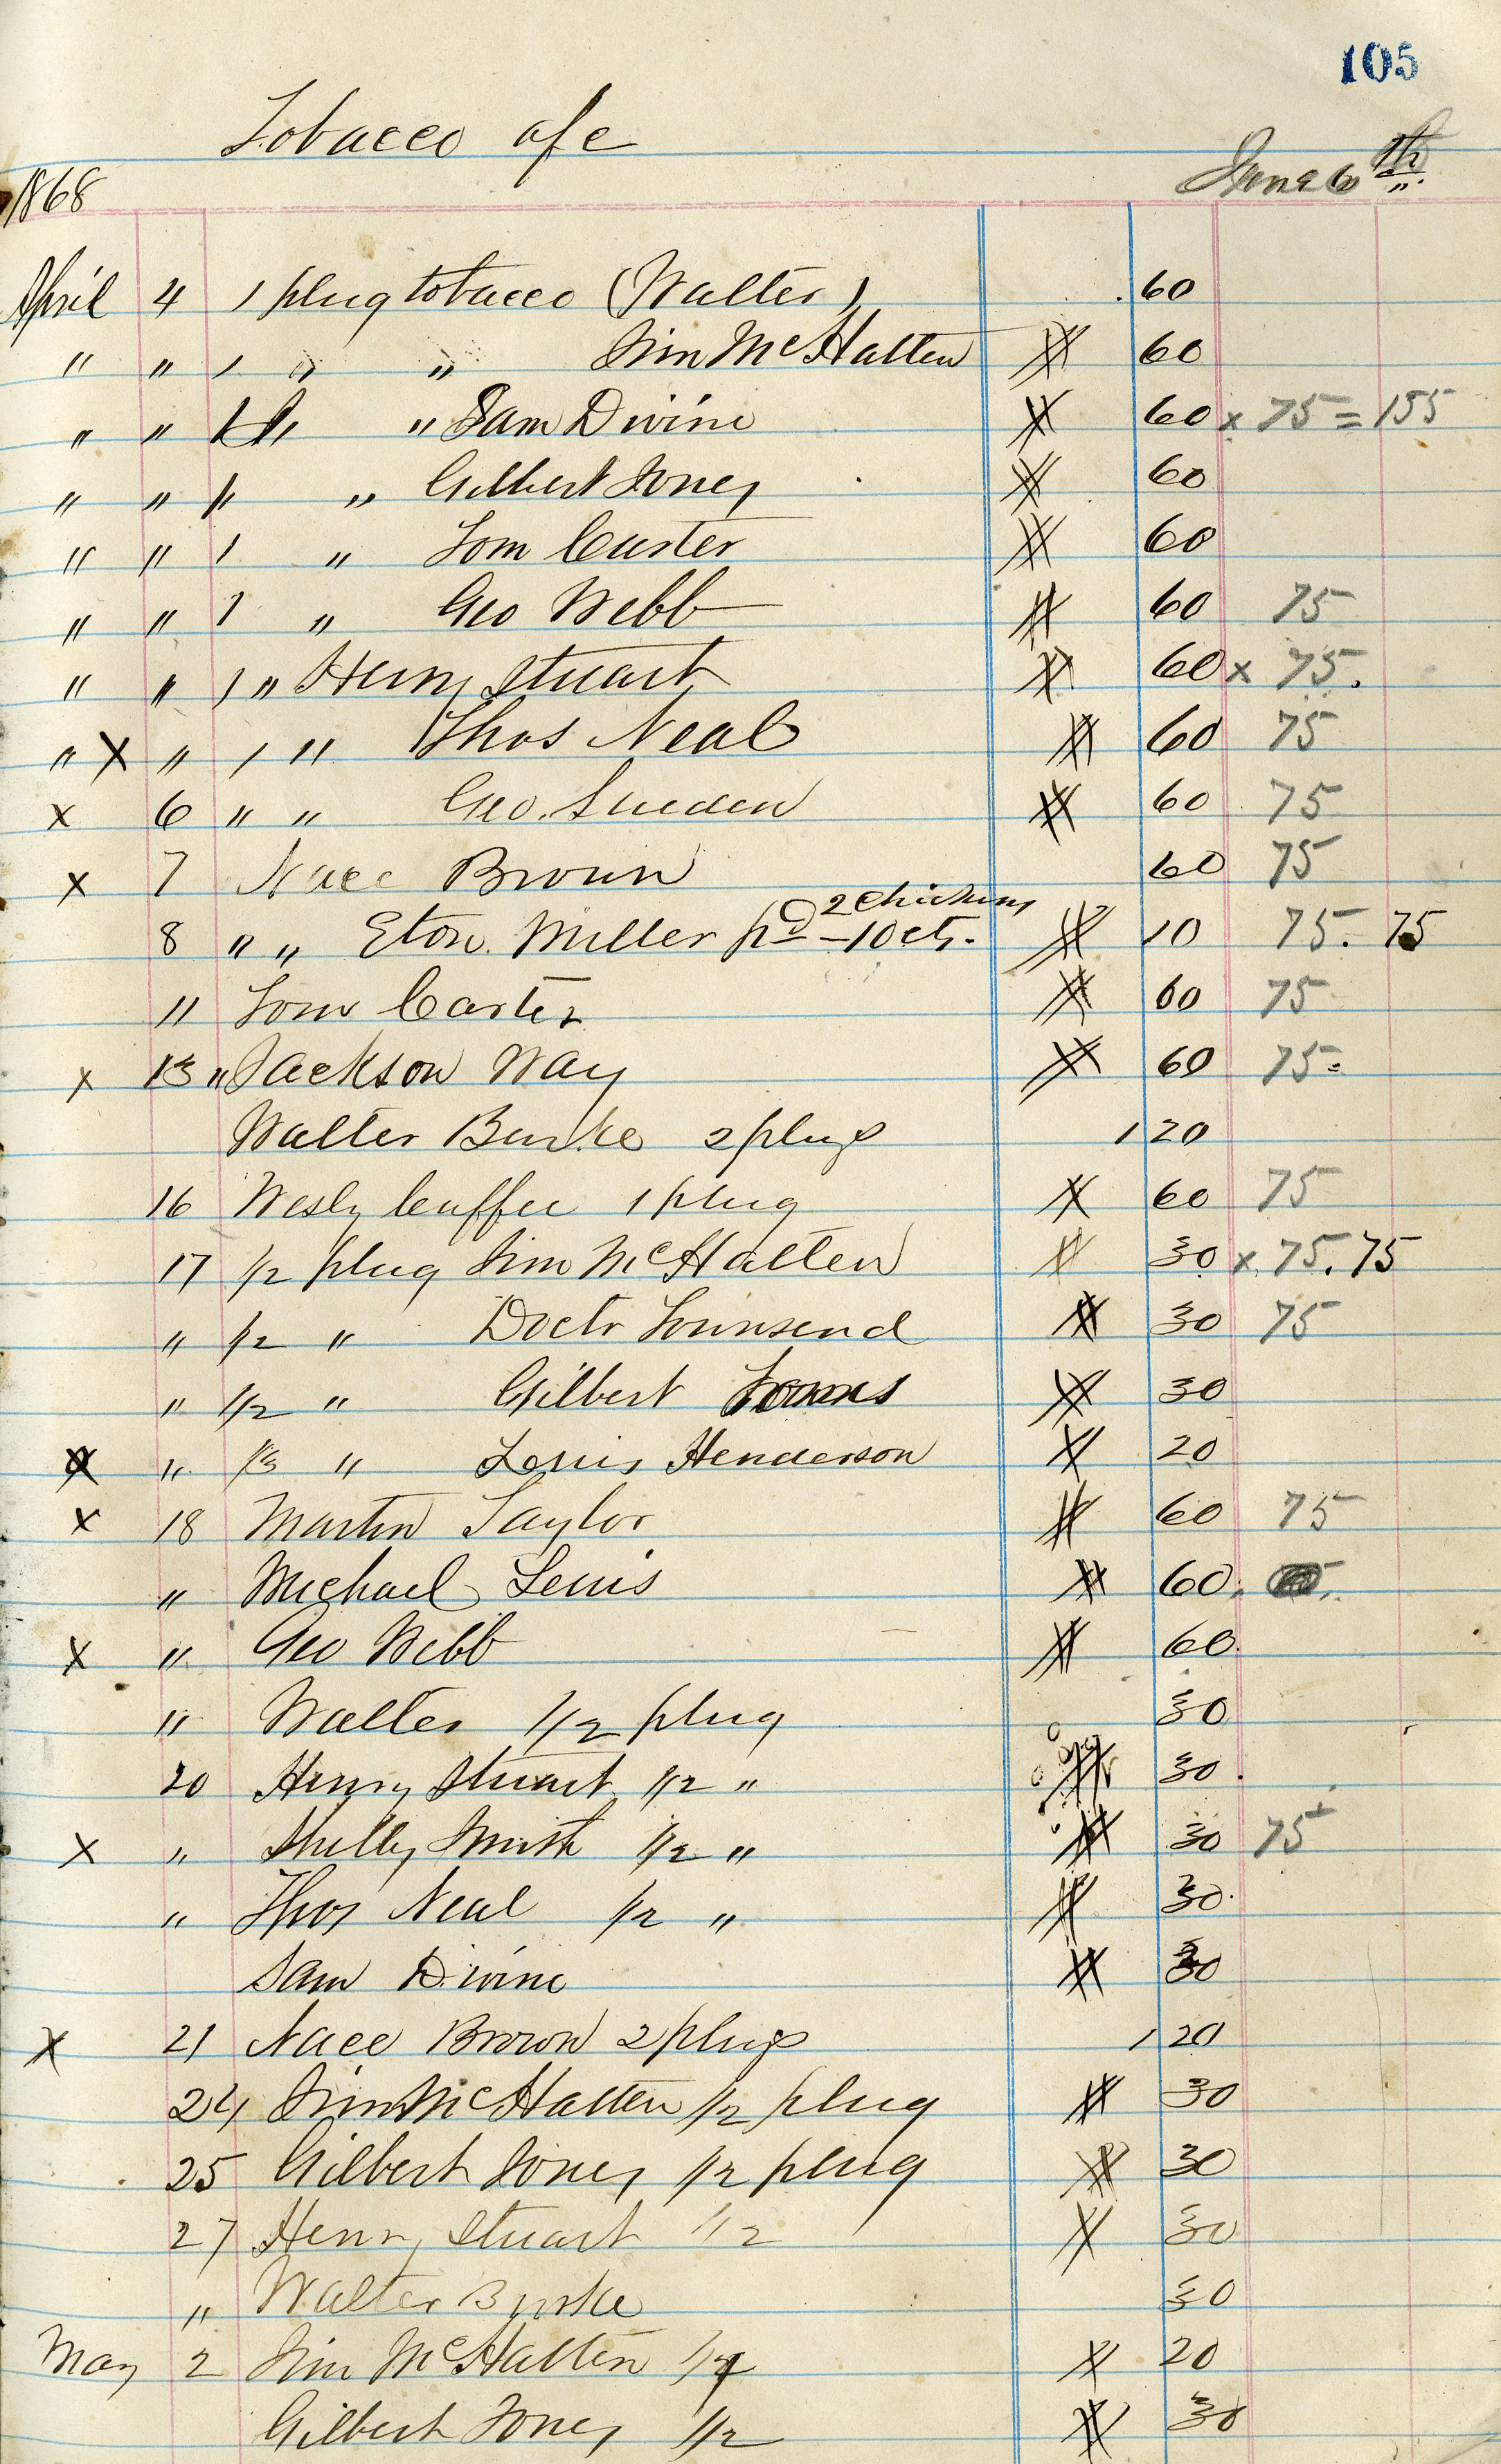 105
Tobacco a/c
1868 June 6th
April 4 1 plug tobacco (Walter) 60
" " 1 " " Jim McHatten 60
" " 1 " " Sam Divine 60 x 75 = 155
" " 1 " " Gilbert Jones 60
" " 1 " Tom Carter 60
" " 1 " Geo Webb 60 75
" " 1 " Henry Stuart 60 x 75.
" X " 1 " Thos Neal 60 75
x 6 " " Geo. 60 75
x 7 Nace Brown 60 75
8 " " Eton Miller pd 2 chickens - 10 cts. 10 75. 75
11 Tom Carter 60 75
x 13 " Jackson Way 60 75
Walter Burke 2 plugs 1 20
16 Wesly Cuffee 1 plug 60 75
17 1/2 plug Jim McHatten 30 x 75. 75
" 1/2 " Doctr Townsend 30 75
" 1/2 " Gilbert 30
x " 1/3 " Louis Henderson 20
x 18 Martin Taylor 60 75
" Michael Lewis 60
x " Geo Webb 60
" Walter 1/2 plug 30
20 Henry Stuart 1/2 " 30
x " Shelby Smith 1/2 " 30 75
" Thos Neal 1/2 " 30
Sam Divine 30
x 21 Nace Brown 2 plugs 1 20
24 Jim McHatten 1/2 plug 30
25 Gilbert Jones 1/2 plug 30
27 Henry Stuart 1/2 30
" Walter Burke 30
May 2 Jim McHatten 20
Gilbert Jones 1/2 30